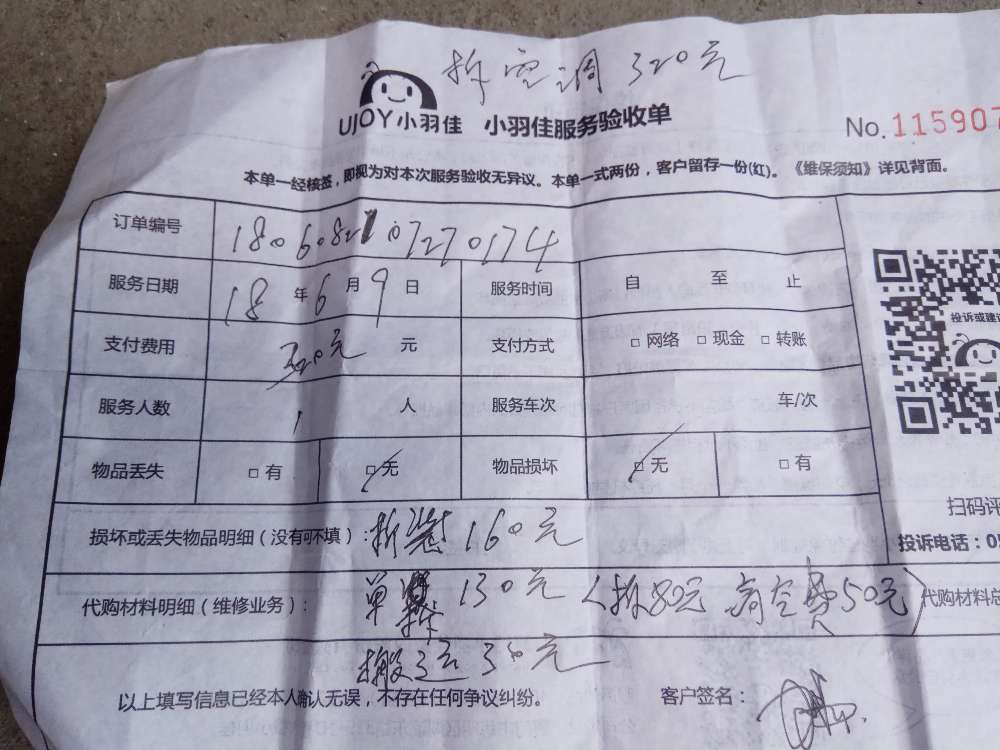 拆空调 320元
UJOY小羽佳 小羽佳服务验收单
No. 115907
本单一经核签，即视为对本次服务验收无异议。本单一式两份，客户留存一份(红)。《维保须知》详见背面。
订单编号
服务日期 18 年 6 月 9 日 服务时间 自 至 止
支付费用 320元 元 支付方式 □ 网络 □ 现金 □ 转账
服务人数 1 人 服务车次 车/次
物品丢失 □ 有 □ 无 物品损坏 □ 无 □ 有
损坏或丢失物品明细（没有可不填）： 拆装 160元
代购材料明细（维修业务）： 单拆 130元（拆80元 高空费50元） 代购材料总
搬运 30元
以上填写信息已经本人确认无误，不存在任何争议纠纷。 客户签名：
投诉或建议
扫码评
投诉电话：05